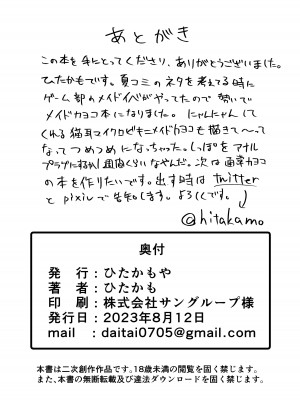 あとがき
この本を手にとってくださり、ありがとうございました。
ひたかもです。夏コミのネタを考えてる時に
ゲーム部のメイドイベがやってたので勢いで
メイドカヨコ本になりました。にゃんにゃんして
くれる猫耳マイクロビキニメイドカヨコも描きて〜って
なってつめつめになっちゃった。しっぽをアナル
プラグにするか1週間くらいなやんだ。次は通常カヨコ
の本を作りたいです。出す時はtwitter
とpixivで告知します。よろしくです。
@hitakamo
奥付
発 行:ひたかもや
著 者:ひたかも
印 刷:株式会社サングループ様
発行日:2023年8月12日
mail :daitai0705@gmail.com
本書は二次創作作品です。18歳未満の閲覧を固く禁じます。
また、本書の無断転載及び違法ダウンロードを固く禁じます。